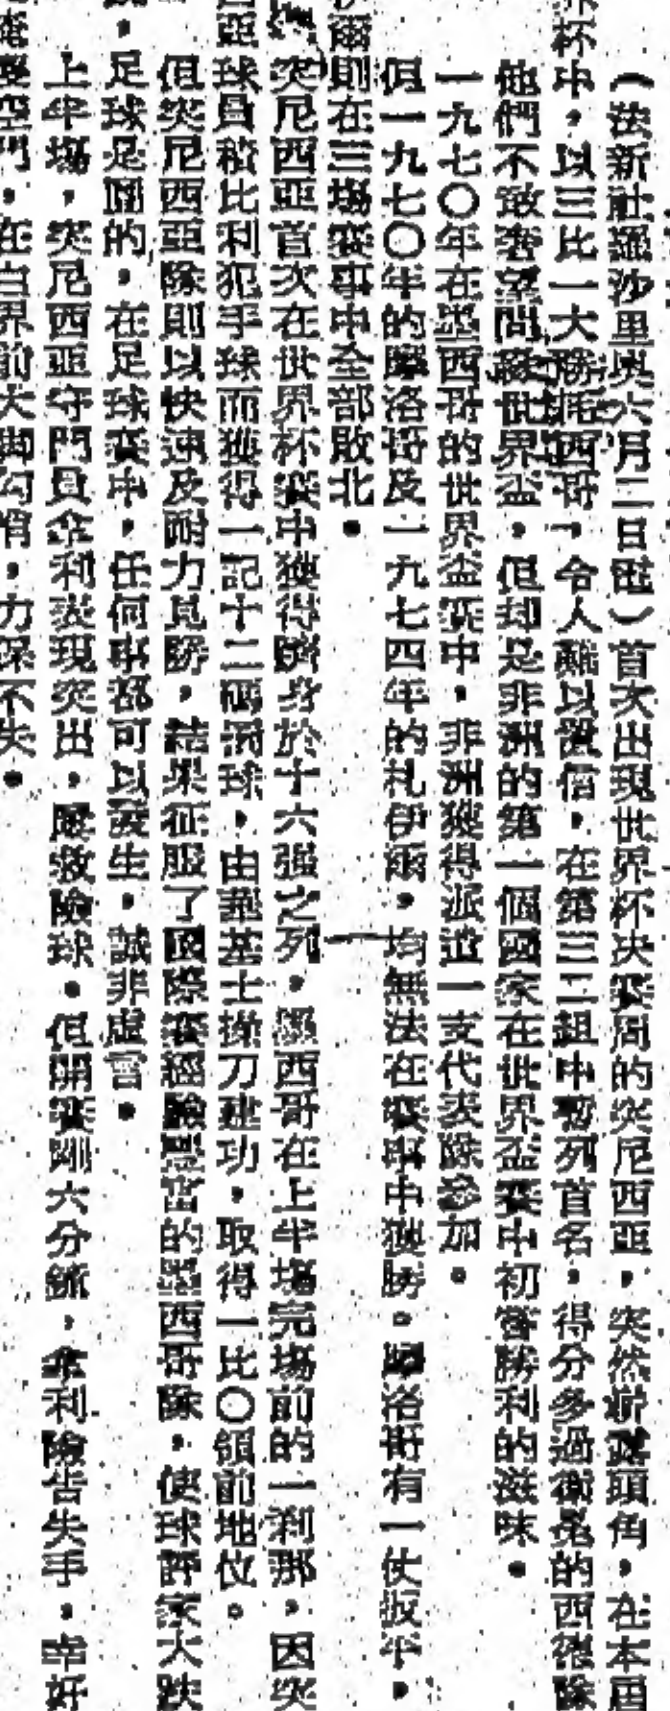 （法新社羅沙里奧六月二日電）首次出現世界杯决賽周的突尼西亞，突然嶄露頭角，在本屆
界杯中，以三比一大勝墨西哥，令人難以置信，在第三二組中暫列首名，得分多過衞冕的西德隊
他們不敢奢望問鼎世界盃，但却是非洲的第一個國家在世界盃賽中初嘗勝利的滋味。
一九七〇年在墨西哥的世界盃賽中，非洲獲得派遣一支代表隊參加。
但一九七〇年的摩洛哥及一九七四年的札伊爾，均無法在賽事中獲勝。摩洛哥有一仗扳平，
伊爾則在三場賽事中全部敗北。
突尼西亞首次在世界杯賽中獲得躋身於十六强之列。墨西哥在上半場完場前的一刹那，因突
西亞球員積比利犯手球而獲得一記十二碼罰球，由韋基士操刀建功，取得一比〇領前地位。
但突尼西亞隊則以快速及耐力見勝，結果征服了國際賽經驗豐富的墨西哥隊，使球評家大跌
，足球是圓的，在足球賽中，任何事都可以發生，誠非虛言。
上半場，突尼西亞守門員拿利表現突出，屢救險球。但開賽剛六分鐘，拿利險告失手，幸好
空門，在白界前大脚勾消，力保不失。